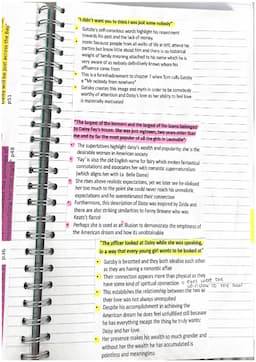 "I didn't want you to think I was just some nobody"
Gatsby's self-conscious words highlight his resentment
towards his past and the lack of money.
Ironic because people from all walks of life at WE, attend his
parties but know little about him and there is no historical
weight of family meaning attached to his name which he is
very aware of as nobody definitely knows where his
affluence came from
This is a foreshadowment to chapter 7 when Tom calls Gatsby
a "Mr nobody from nowhere"
Gatsby creates this image and myth in order to be somebody
worthy of attention and Daisy's love as her ability to feel love
is materially motivated
"The largest of the banners and the largest of the lawns belonged
to Daisy Fay's house. She was just eighteen, two years older than
me and by far the most popular of all the girls in Louisville"
The superlatives highlight daisy's wealth and popularity; she is the
desirable woman in American society
'Fay' is also the old English name for fairy which evokes fantastical
connotations and associates her with romantic supernaturalism
(which aligns with La Belle Dame)
She rises above realistic expectations, yet we later see he idolised
her too much to the point she could never reach his unrealistic
expectations and he overestimated their connection
Furthermore, this description of Daisy was inspired by Zelda and
there are also striking similarities to Fanny Brawne who was
Keats's fiancé
Perhaps she is used as an illusion to demonstrate the emptiness of
the American dream and how its unobtainable
"The officer looked at Daisy while she was speaking,
in a way that every young girl wants to be looked at"
Gatsby is besotted and they both idealise each other
as they are having a romantic affair
Their connection appears more than physical as they
have some kind of spiritual connection
This establishes the relationship between the two as
their love was not always unrequited
Despite his accomplishment in achieving the
American dream he does feel unfulfilled still because
he has everything except the thing he truly wants:
Daisy and her love.
Her presence makes his wealth so much grander and
without her the wealth he has accumulated is
pointless and meaningless